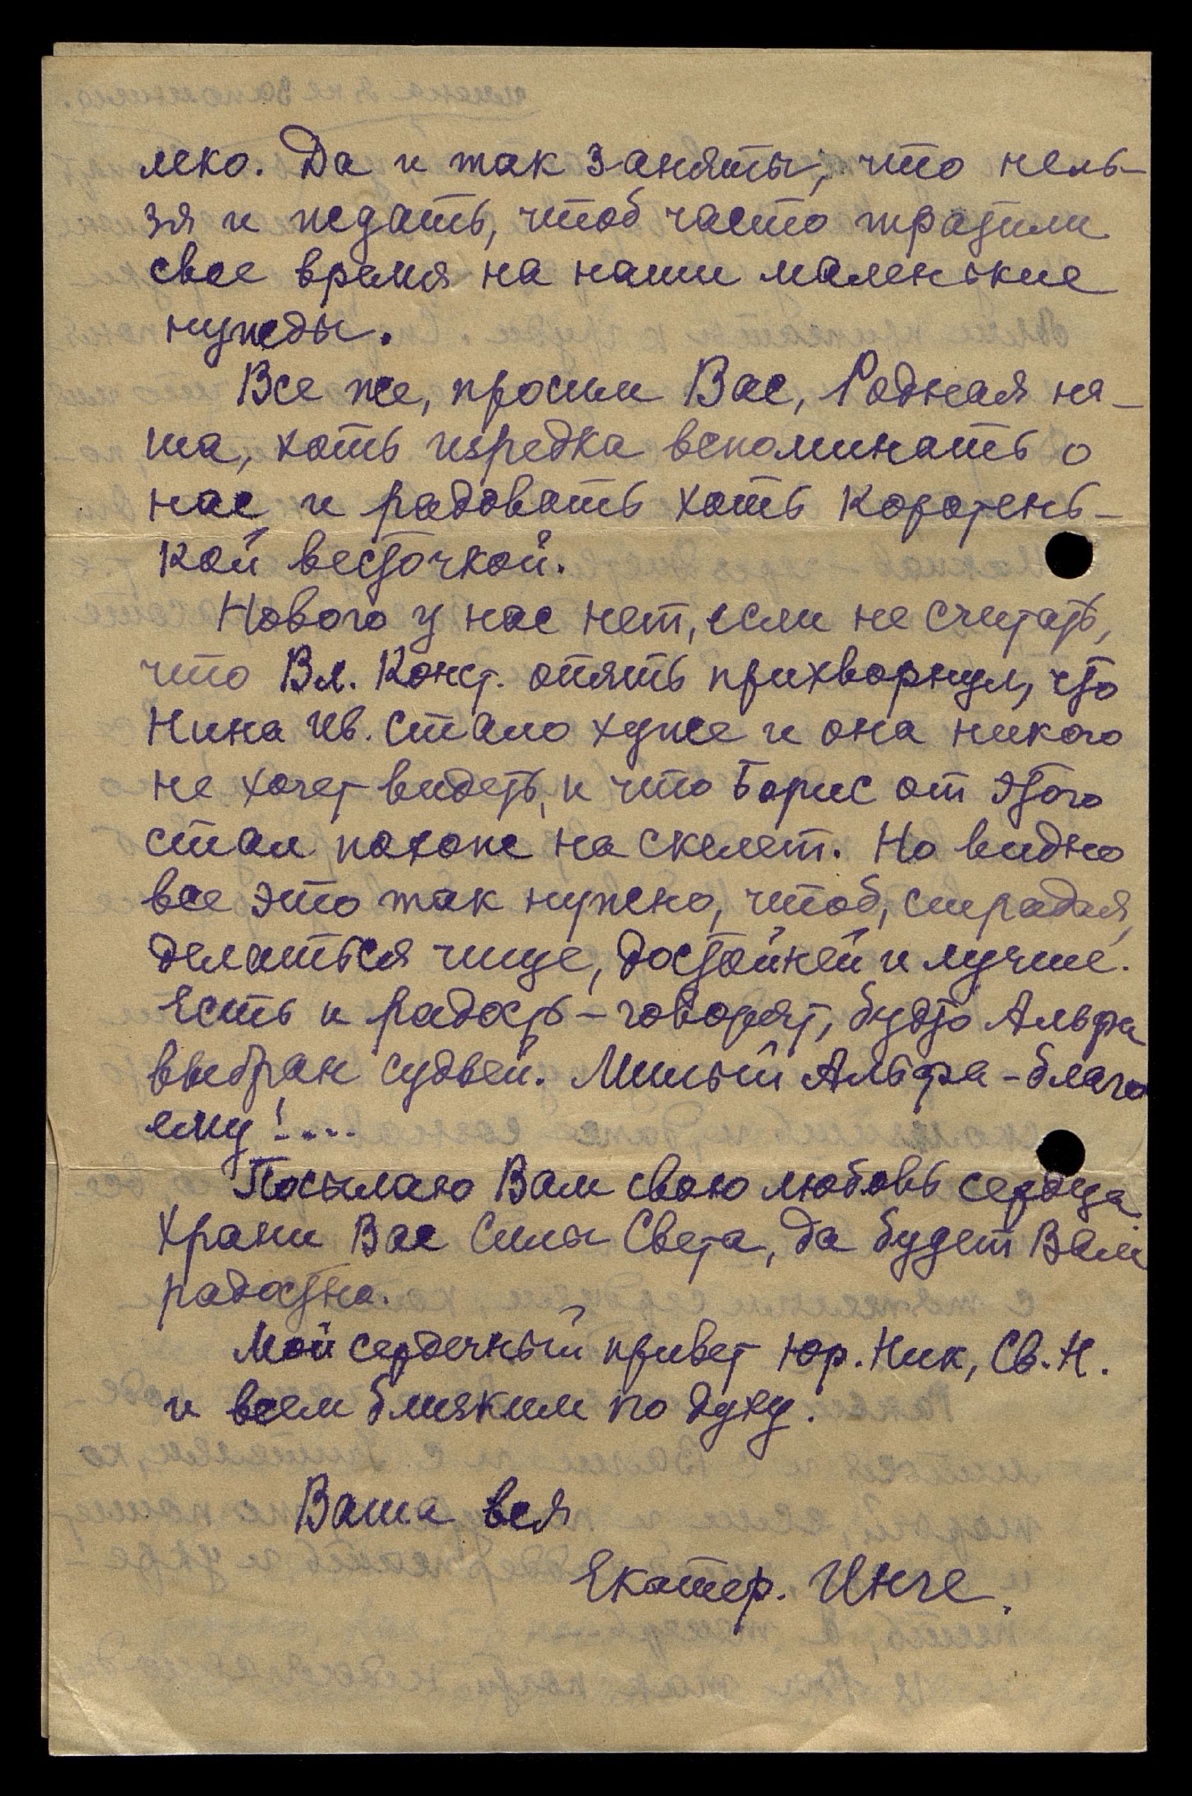 леко. Да и так заняты, что нель-
зя и ждать, чтоб часто тратили
свое время на наши маленькие
нужды.
Все же, просим Вас, Родная на-
ша, хоть изредка вспоминать о
нас и радовать хоть коротень-
кой весточкой.
Нового у нас нет, если не считать,
что Вл. Конст. опять прихворнул, что
Нина Ив. стало хуже и она никого
не хочет видеть, и что Борис от этого
стал похож на скелет. Но видно
все это так нужно, чтоб, страдая,
делаться чище, достойней и лучше.
Есть и радость – говорят, будто Альфа
выбран судьей. Милый Альфа – благо
ему!....
Посылаю Вам свою любовь сердца.
Храни Вас Силы Света, да будет Вам
радостно.
Мой сердечный привет Юр. Ник, Св. Н.
и всем близким по духу.
Ваша вся
Екатер. Инге.